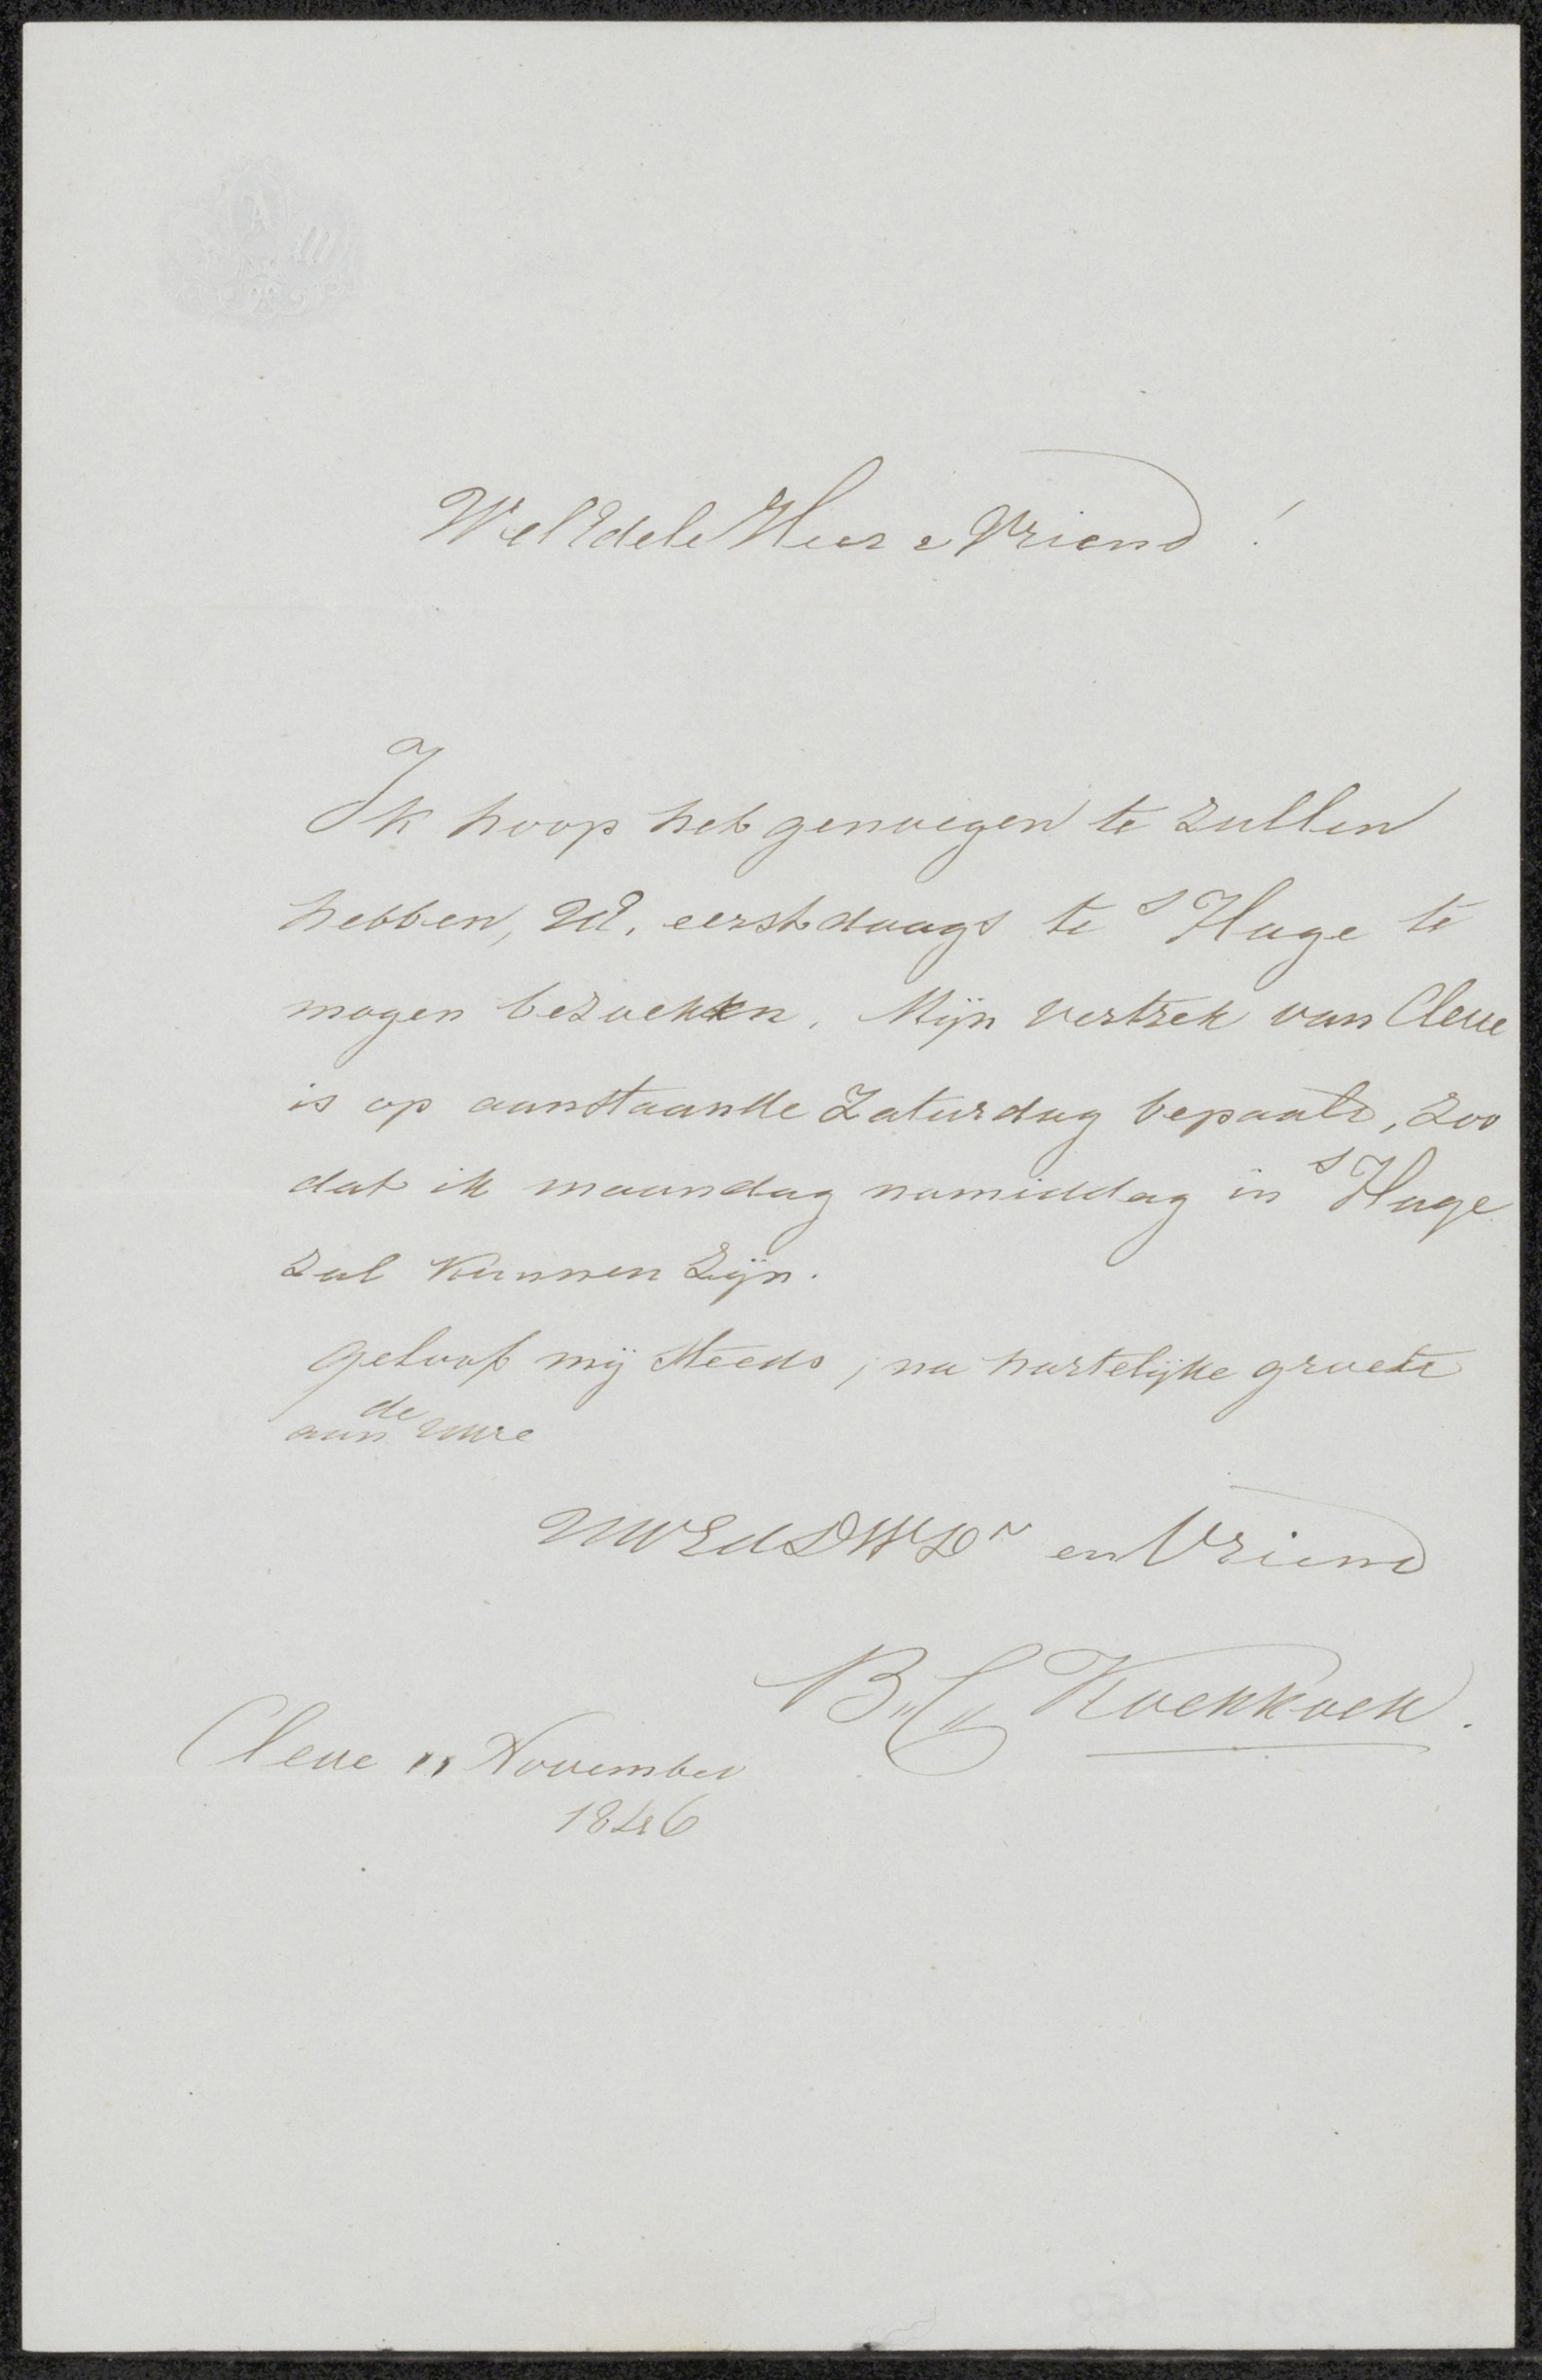 WelEdele Heer & Vriend!
Ik hoop het genoegen te zullen
hebben, UE. eerstdaags te s Hage te
mogen bezoeken. Mijn vertrek van Cleve
is op aanstaande Zaturdag bepaald, zoo
dat ik maandag namiddag in s Hage
zal kunnen zijn.
geloof mij steeds, na hartelijke groete
aan de uwe
UWEdDWDr en Vriend
B.C. Koekkoek.
Cleve 11 November
1846